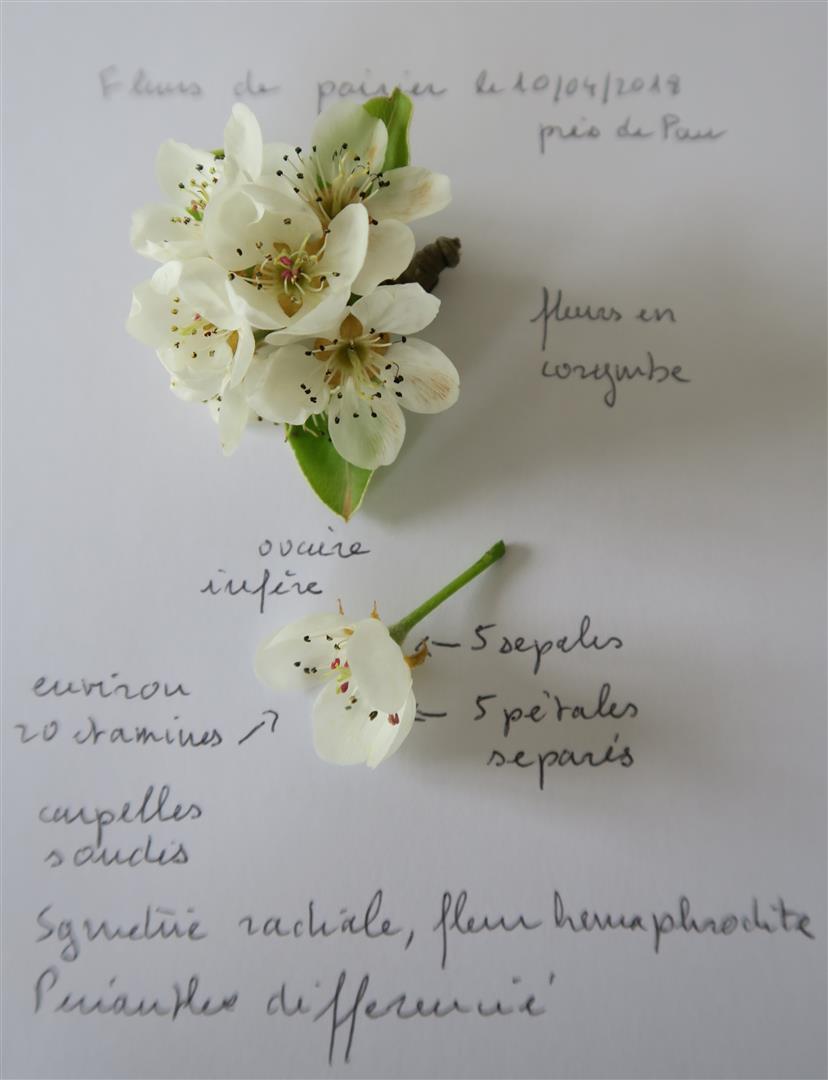 Fleurs de poirier le 10/04/2018
près de Pau
fleurs en
corymbe
ovaire
infère
5 sepales
environ
20 etamines
5 pétales
separés
carpelles
soudés
Symétrie radiale, fleur hermaphrodite
Périanthe différencié